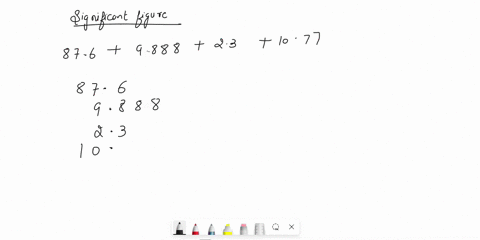 Significant figure
87.6 + 9.888 + 2.3 + 10.77
87.6
9.888
2.3
10.